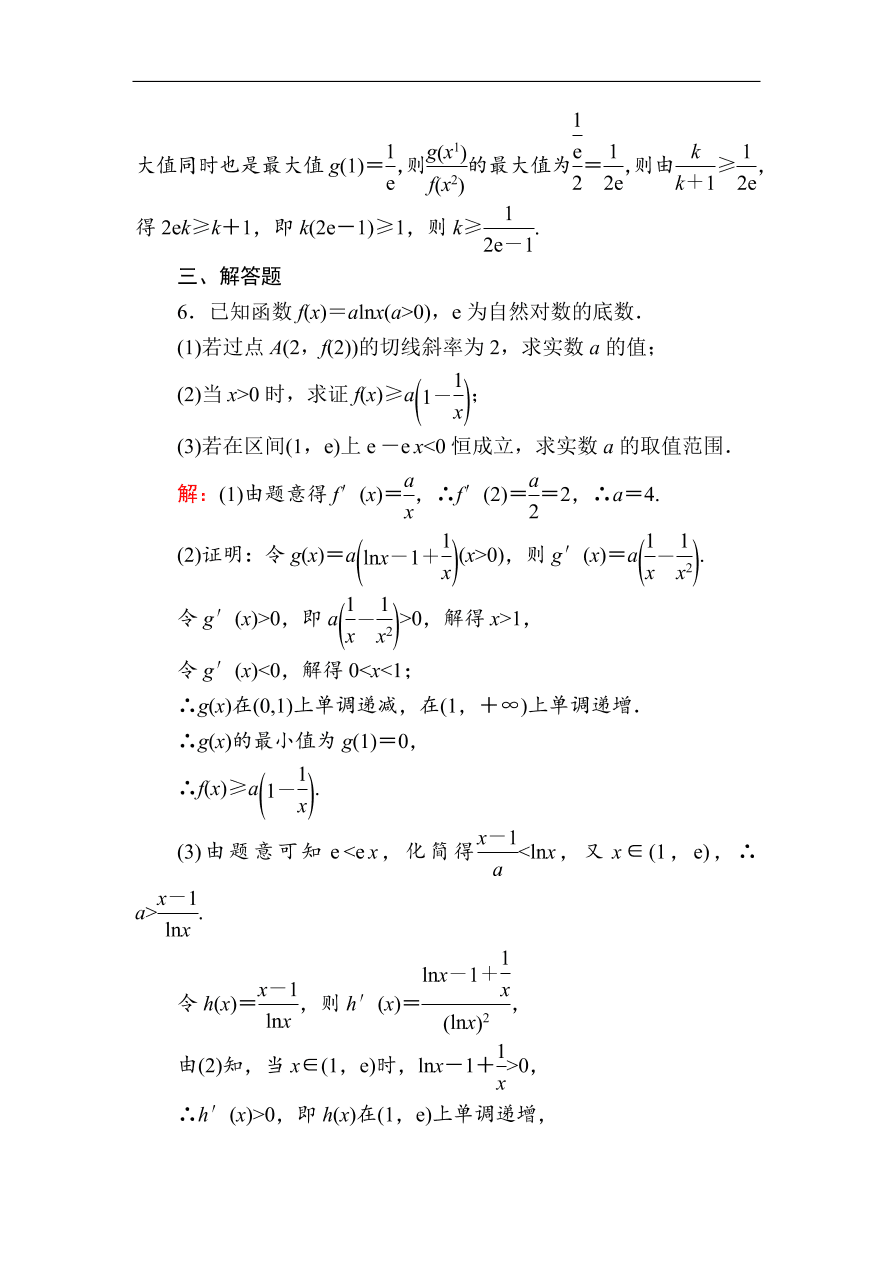 大值同时也是最大值 g(1)＝1/e，则g(x¹)/f(x²)的最大值为(1/e)/2＝1/2e，则由k/(k＋1)≥1/2e，
得 2ek≥k＋1，即 k(2e－1)≥1，则 k≥1/(2e－1).
三、解答题
6．已知函数 f(x)＝alnx(a>0)，e 为自然对数的底数．
(1)若过点 A(2，f(2))的切线斜率为 2，求实数 a 的值；
(2)当 x>0 时，求证 f(x)≥a(1－1/x)；
(3)若在区间(1，e)上 e －e x<0 恒成立，求实数 a 的取值范围．
解：(1)由题意得 f′(x)＝a/x，∴f′(2)＝a/2＝2，∴a＝4.
(2)证明：令 g(x)＝a(lnx－1＋1/x)(x>0)，则 g′(x)＝a(1/x－1/x²).
令 g′(x)>0，即 a(1/x－1/x²)>0，解得 x>1，
令 g′(x)<0，解得 0<x<1；
∴g(x)在(0,1)上单调递减，在(1，＋∞)上单调递增．
∴g(x)的最小值为 g(1)＝0，
∴f(x)≥a(1－1/x).
(3)由题意可知 e <e x，化简得(x－1)/a<lnx，又 x∈(1，e)，∴
a>(x－1)/lnx.
令 h(x)＝(x－1)/lnx，则 h′(x)＝(lnx－1＋1/x)/(lnx)²，
由(2)知，当 x∈(1，e)时，lnx－1＋1/x>0，
∴h′(x)>0，即 h(x)在(1，e)上单调递增，